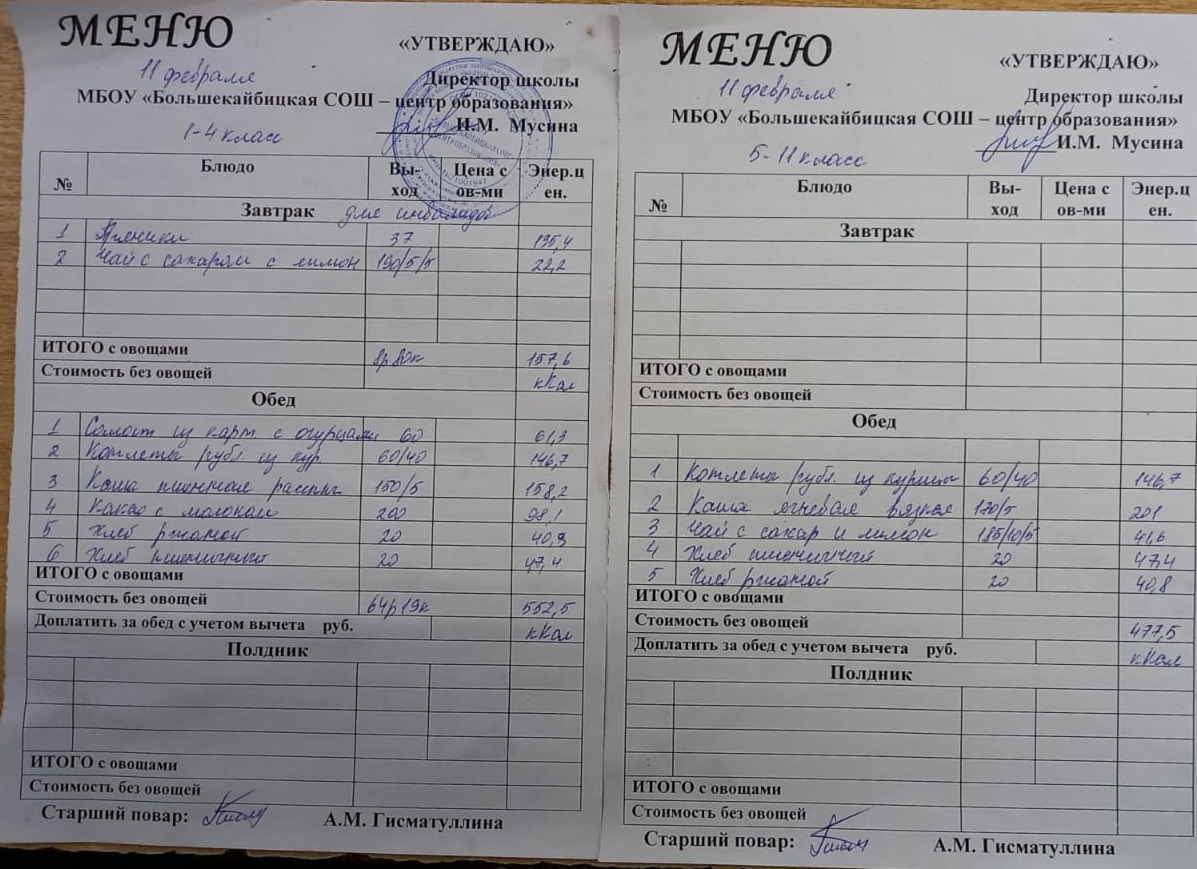 МЕНЮ
«УТВЕРЖДАЮ»
11 февраля
Директор школы
МБОУ «Большекайбицкая СОШ – центр образования»
И.М. Мусина
1-4 класс
№ Блюдо Вы-ход Цена с ов-ми Энер.ц ен.
Завтрак для инвалидов
1 Пряники 37 135,4
2 Чай с сахаром с лимон 190/5/5 22,2
ИТОГО с овощами 8р80к 157,6
Стоимость без овощей кКал
Обед
1 Солот из карт. с огурцами 60 61,3
2 Котлеты рубл. из кур 60/40 146,7
3 Каша пшенная рассып. 150/5 158,2
4 Какао с молоком 200 98,1
5 Хлеб ржаной 20 40,9
6 Хлеб пшеничный 20 47,4
ИТОГО с овощами
Стоимость без овощей 64р19к 552,5
Доплатить за обед с учетом вычета руб. кКал
Полдник
ИТОГО с овощами
Стоимость без овощей
Старший повар: А.М. Гисматуллина
МЕНЮ
«УТВЕРЖДАЮ»
11 февраля
Директор школы
МБОУ «Большекайбицкая СОШ – центр образования»
И.М. Мусина
5-11 класс
№ Блюдо Вы-ход Цена с ов-ми Энер.ц ен.
Завтрак
ИТОГО с овощами
Стоимость без овощей
Обед
1 Котлеты рубл. из курицы 60/40 146,7
2 Каша ячневая вязкая 170/5 201
3 Чай с сахар и лимон 185/10/5 41,6
4 Хлеб пшеничный 20 47,4
5 Хлеб ржаной 20 40,8
ИТОГО с овощами
Стоимость без овощей 477,5
Доплатить за обед с учетом вычета руб. кКал
Полдник
ИТОГО с овощами
Стоимость без овощей
Старший повар: А.М. Гисматуллина